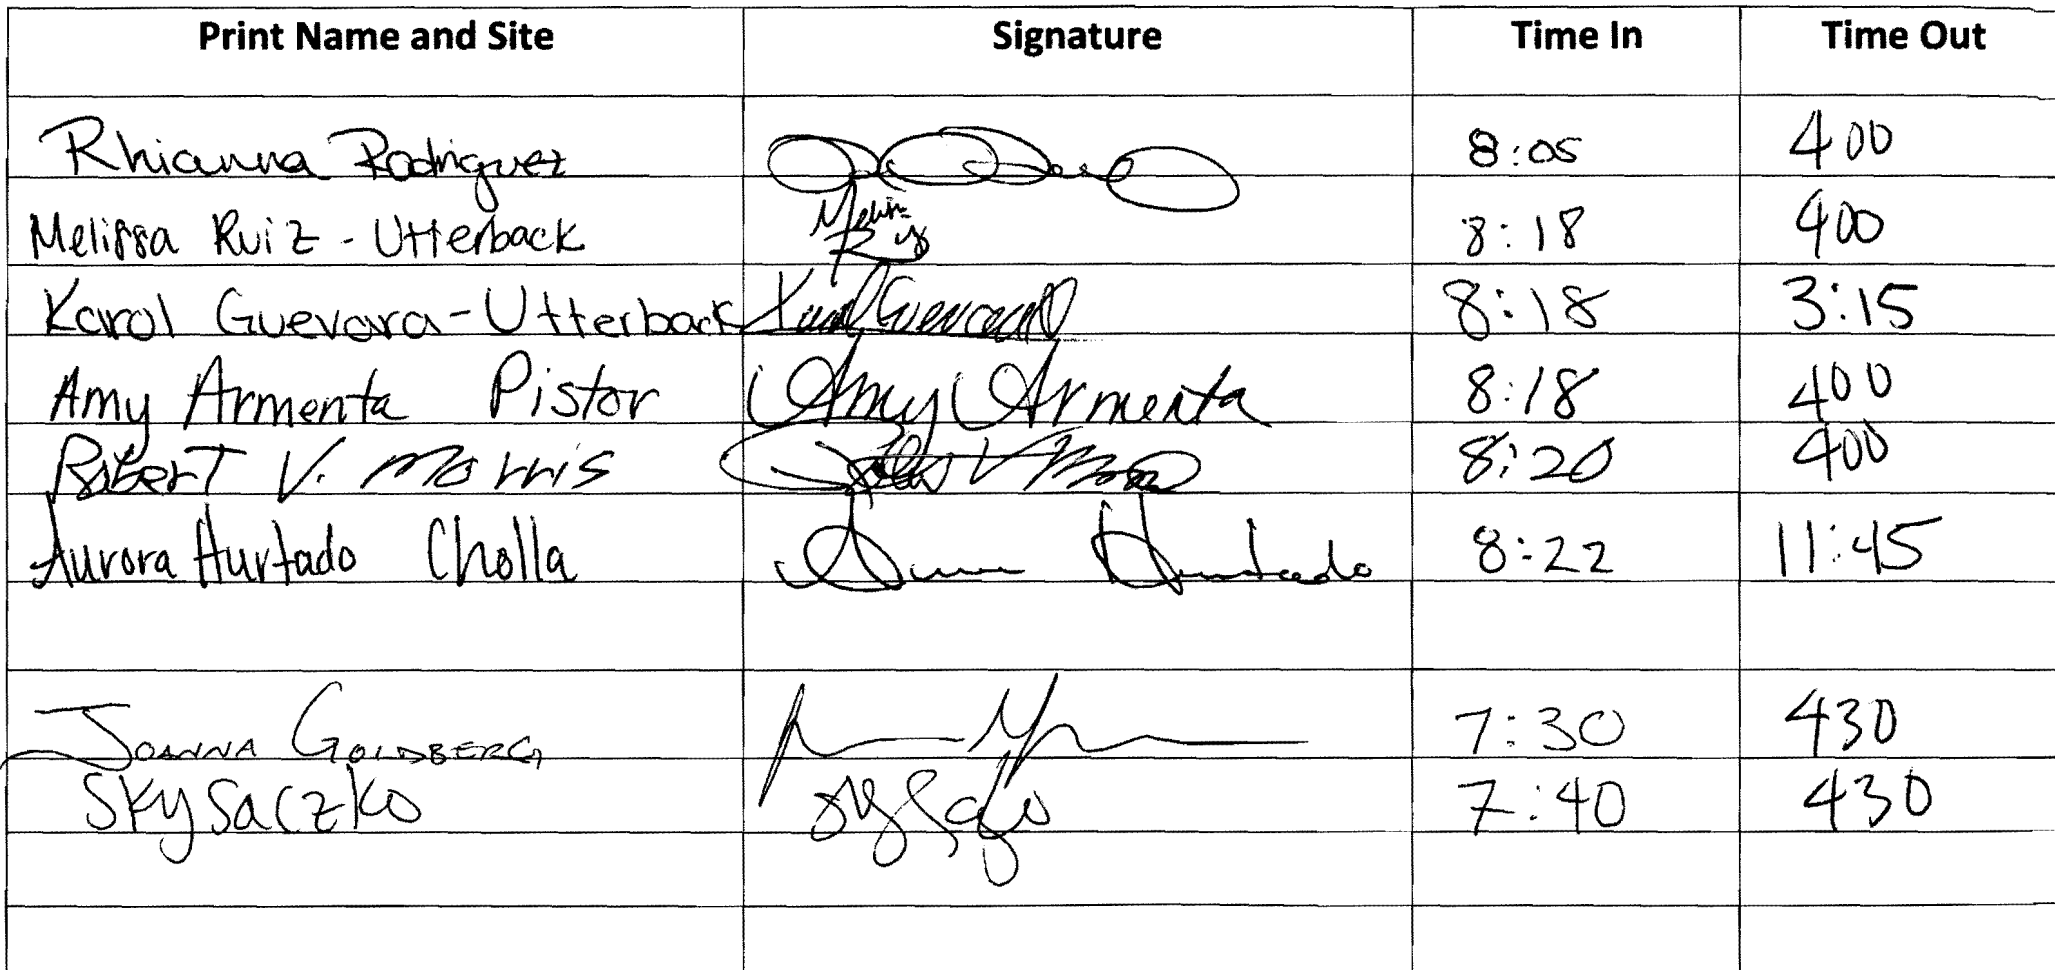 Print Name and Site Signature Time In Time Out
Rhianna Rodriguez 8:05 400
Melissa Ruiz - Utterback 8:18 400
Karol Guevara-Utterback Karol Guevara 8:18 3:15
Amy Armenta Pistor Amy Armenta 8:18 400
Robert V. Morris 8:20 400
Aurora Hurtado Cholla Hurtado 8:22 11:45
Joanna Goldberg 7:30 430
Sky Saczko 7:40 430